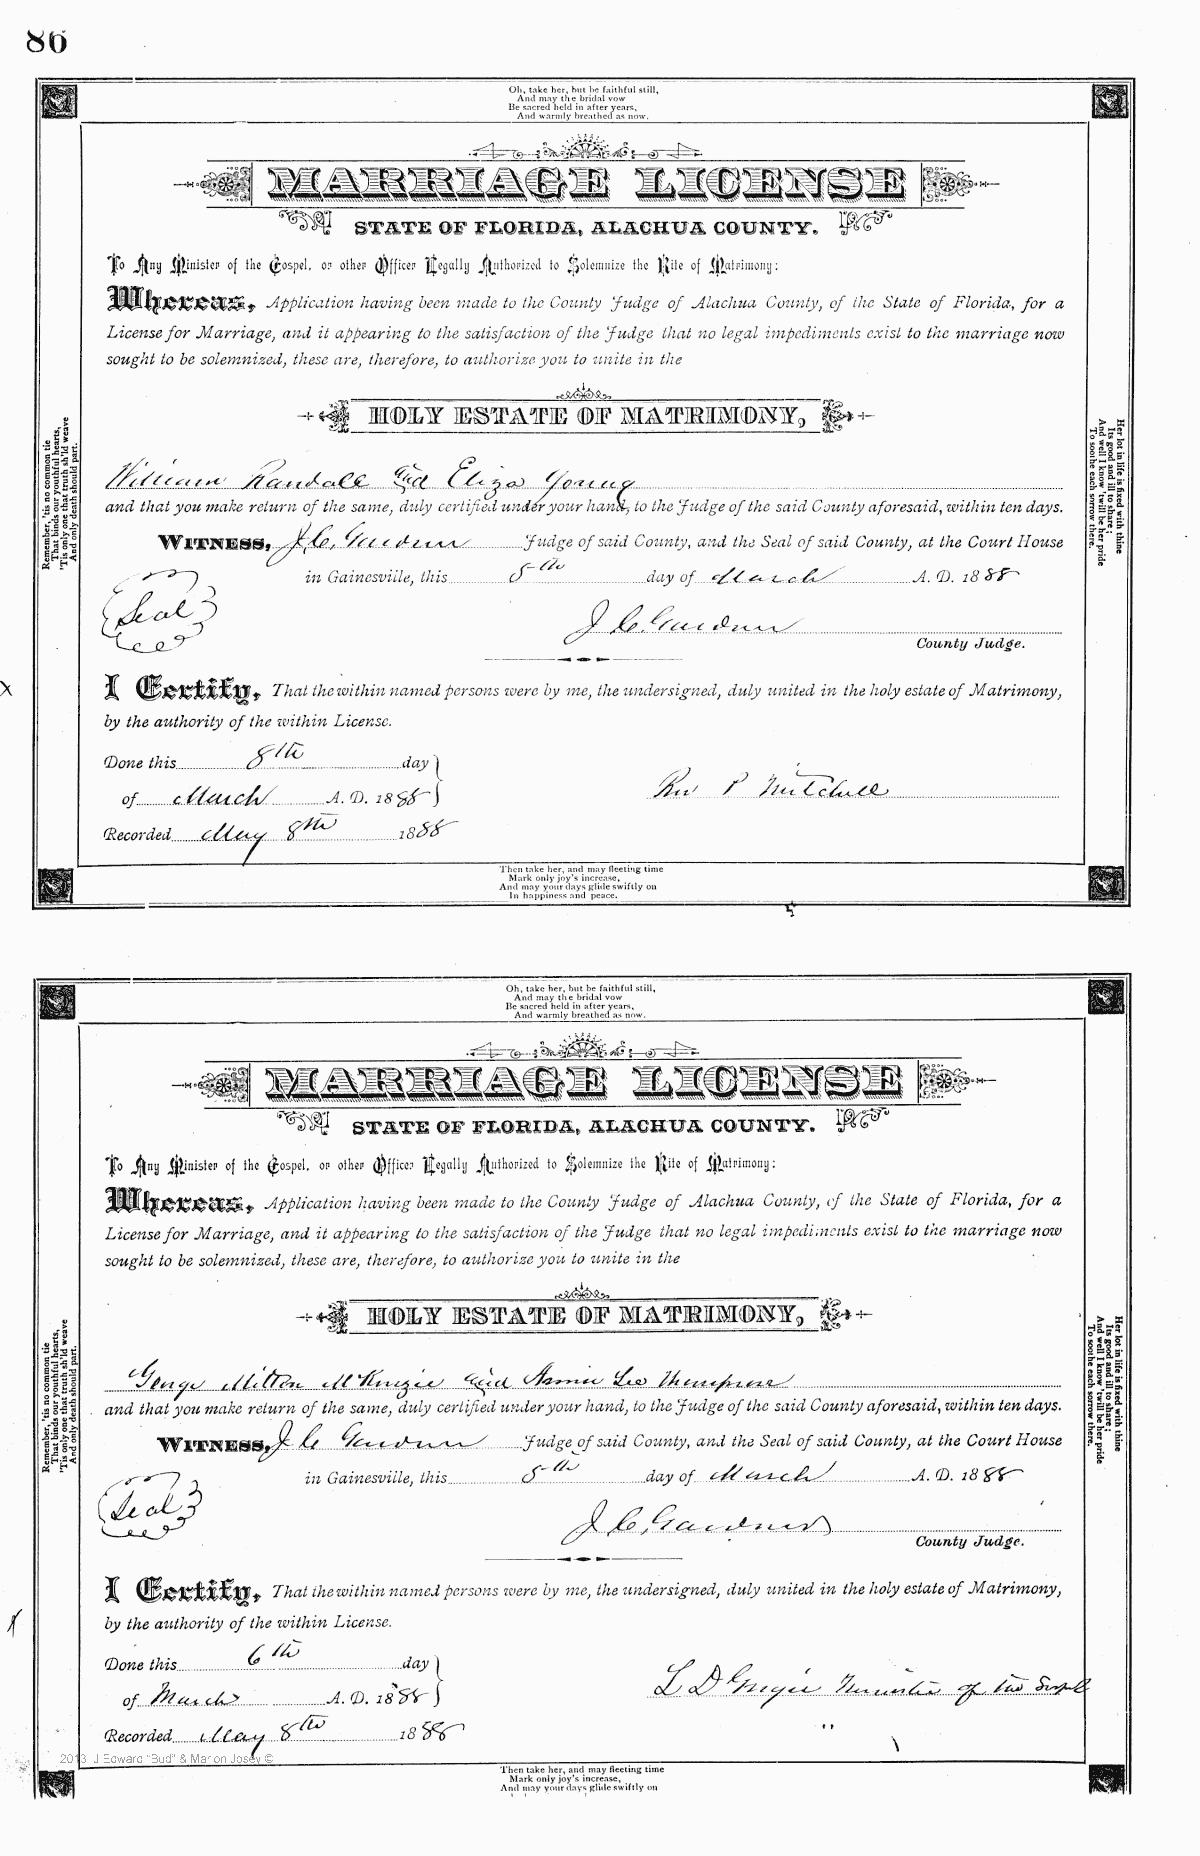 86
Oh, take her, but be faithful still,
And may the bridal vow
Be sacred held in after years,
And warmly breathed as now.
MARRIAGE LICENSE
STATE OF FLORIDA, ALACHUA COUNTY.
To Any Minister of the Gospel, or other Officer Legally Authorized to Solemnize the Rite of Matrimony:
Whereas, Application having been made to the County Judge of Alachua County, of the State of Florida, for a
License for Marriage, and it appearing to the satisfaction of the Judge that no legal impediments exist to the marriage now
sought to be solemnized, these are, therefore, to authorize you to unite in the
HOLY ESTATE OF MATRIMONY,
William Randall and Eliza Young
and that you make return of the same, duly certified under your hand, to the Judge of the said County aforesaid, within ten days.
WITNESS, J. C. Gardner Judge of said County, and the Seal of said County, at the Court House
in Gainesville, this 5th day of March A. D. 1888
Seal
J. C. Gardner
County Judge.
I Certify, That the within named persons were by me, the undersigned, duly united in the holy estate of Matrimony,
by the authority of the within License.
Done this 8th day
of March A. D. 1888
Rev P Mitchell
Recorded May 8th 1888
Remember, 'tis no common tie
That binds our youthful hearts,
'Tis only one that truth sh'ld weave
And only death should part.
Her lot in life is fixed with thine
Its good and ill to share;
And well I know 'twill be her pride
To soothe each sorrow there.
Then take her, and may fleeting time
Mark only joy's increase,
And may your days glide swiftly on
In happiness and peace.
Oh, take her, but be faithful still,
And may the bridal vow
Be sacred held in after years,
And warmly breathed as now.
MARRIAGE LICENSE
STATE OF FLORIDA, ALACHUA COUNTY.
To Any Minister of the Gospel, or other Officer Legally Authorized to Solemnize the Rite of Matrimony:
Whereas, Application having been made to the County Judge of Alachua County, of the State of Florida, for a
License for Marriage, and it appearing to the satisfaction of the Judge that no legal impediments exist to the marriage now
sought to be solemnized, these are, therefore, to authorize you to unite in the
HOLY ESTATE OF MATRIMONY,
George Milton McKinzie and Lee Thompson
and that you make return of the same, duly certified under your hand, to the Judge of the said County aforesaid, within ten days.
WITNESS, J C Gardner Judge of said County, and the Seal of said County, at the Court House
in Gainesville, this 5th day of March A. D. 1888
Seal
J. C. Gardner
County Judge.
I Certify, That the within named persons were by me, the undersigned, duly united in the holy estate of Matrimony,
by the authority of the within License.
Done this 6th day
of March A. D. 1888
L D Minister of the Gospel
Recorded May 8th 1888
2013 J Edward "Bud" & Marion Josey ©
Remember, 'tis no common tie
That binds our youthful hearts,
'Tis only one that truth sh'ld weave
And only death should part.
Her lot in life is fixed with thine
Its good and ill to share;
And well I know 'twill be her pride
To soothe each sorrow there.
Then take her, and may fleeting time
Mark only joy's increase,
And may your days glide swiftly on